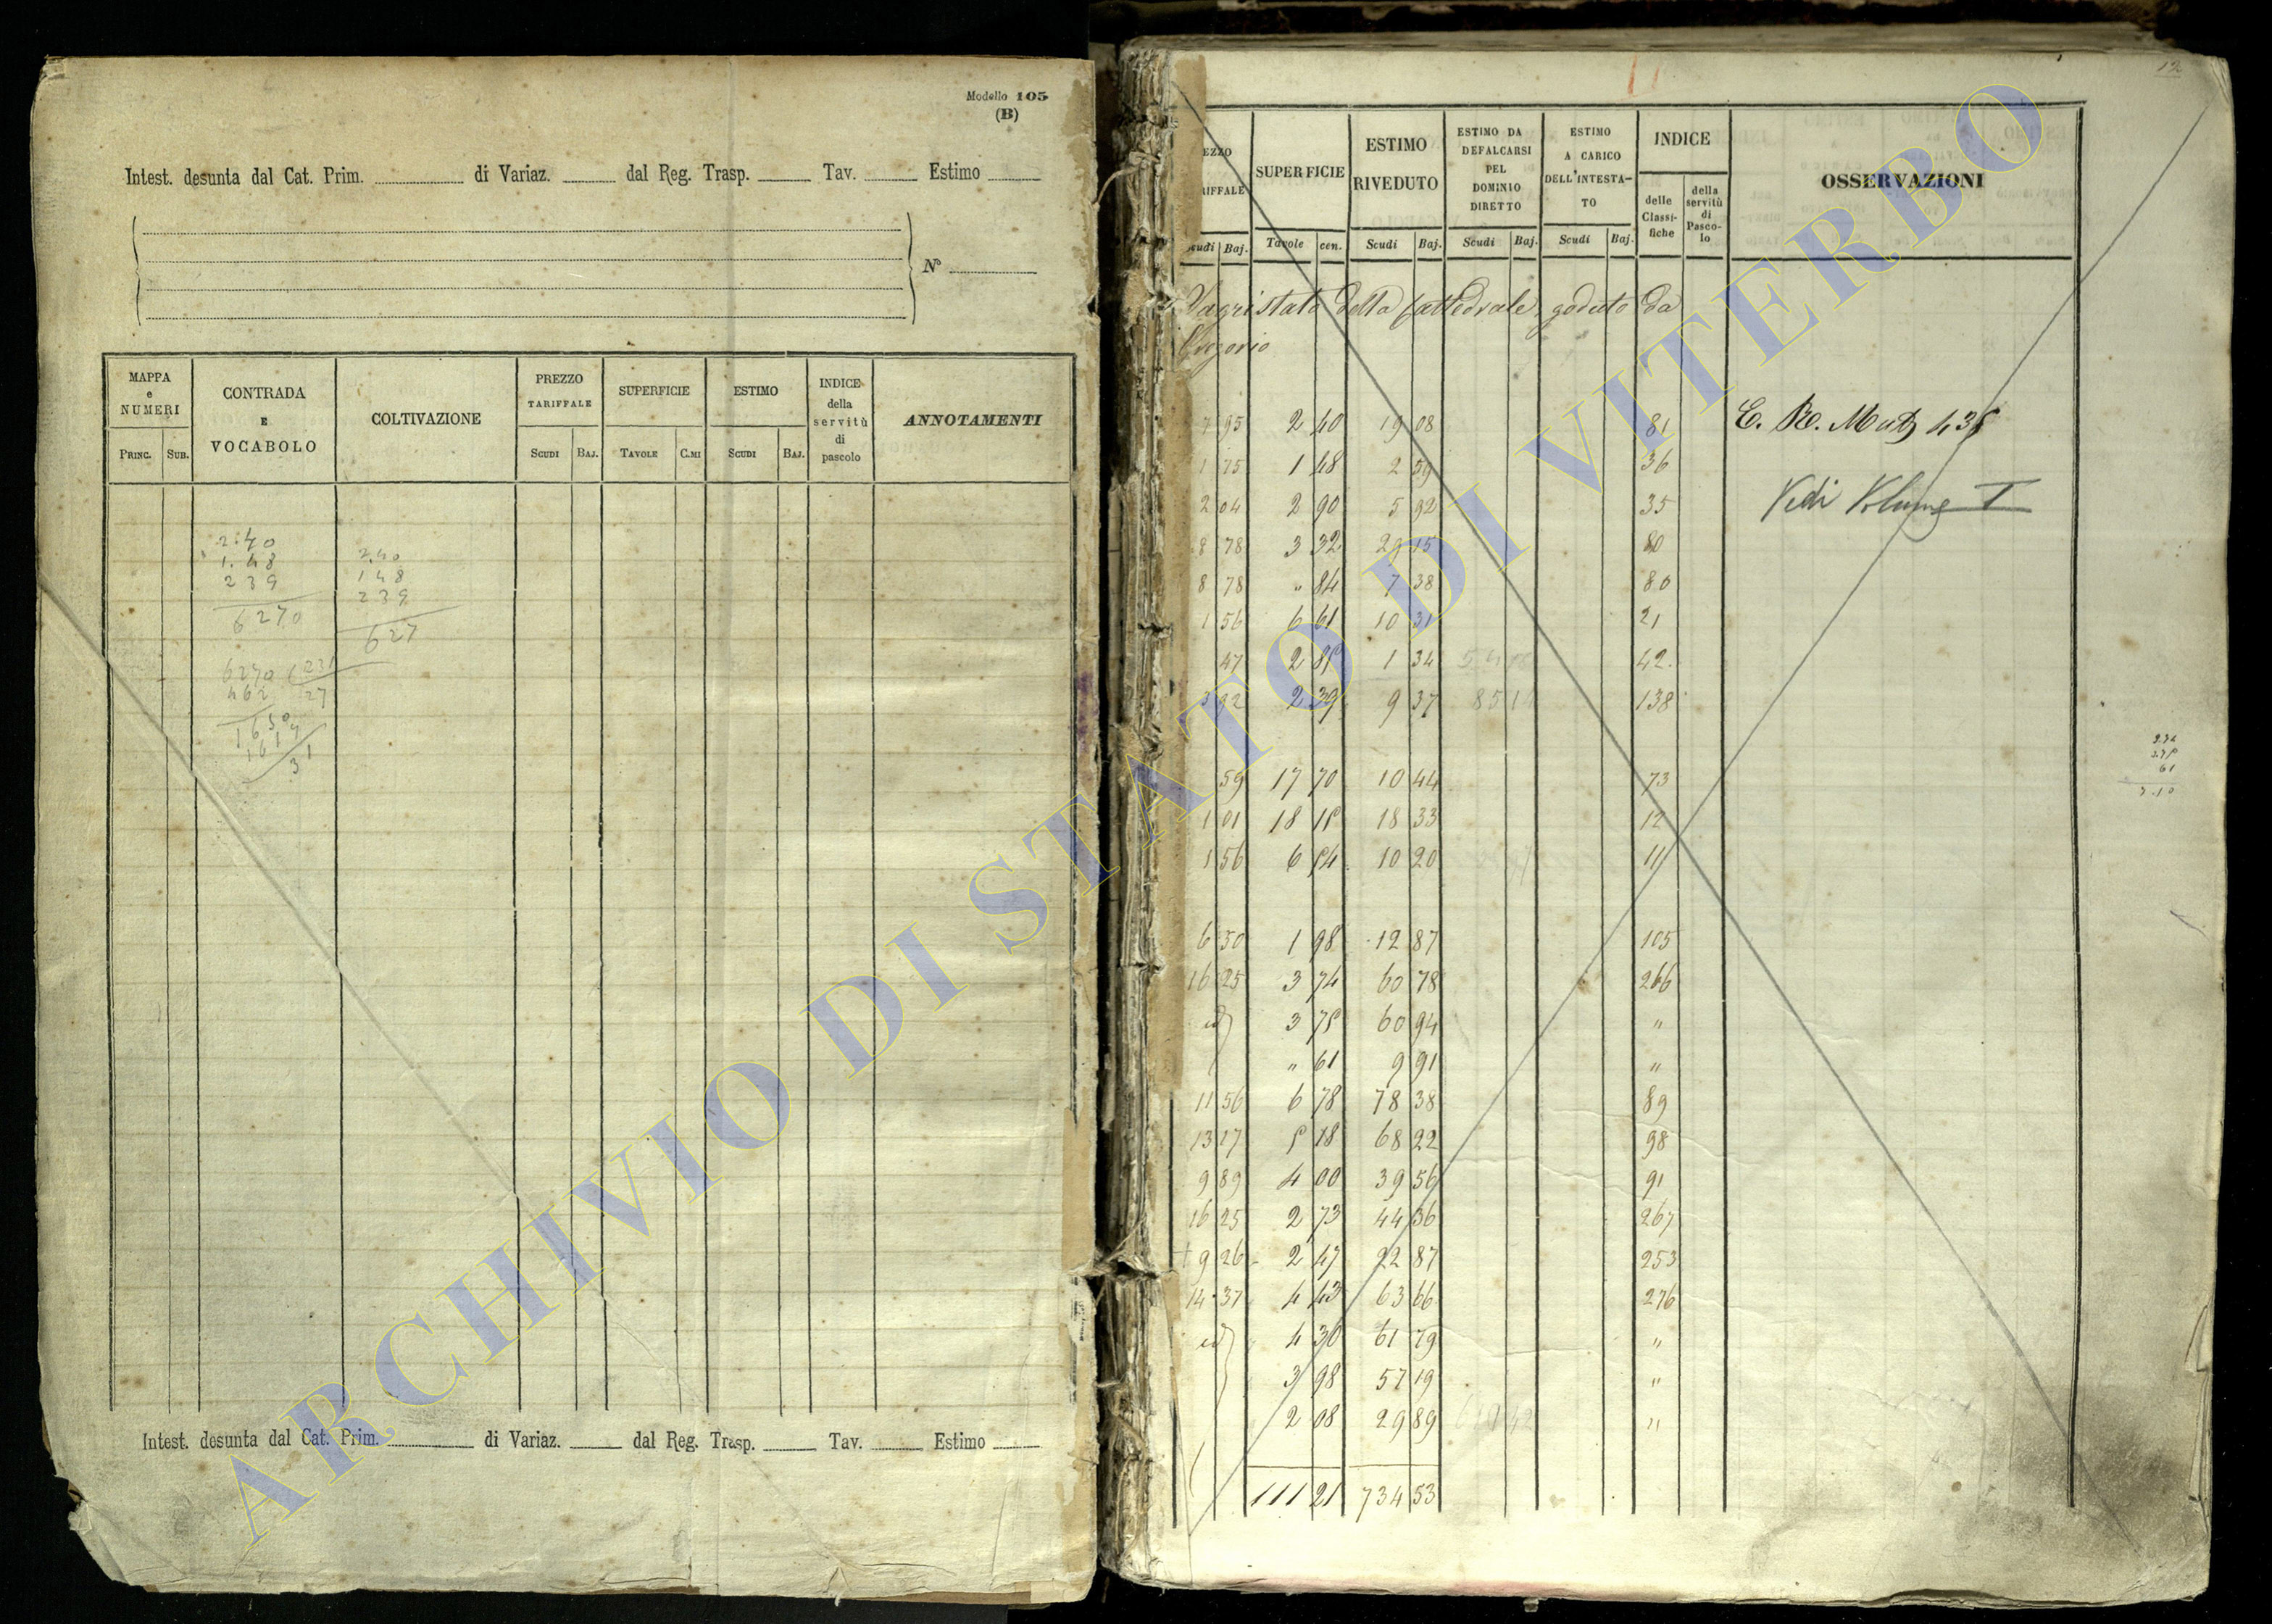 Modello 105
(B)
Intest. desunta dal Cat. Prim. di Variaz. dal Reg. Trasp. Tav. Estimo
N°
MAPPA e NUMERI CONTRADA E VOCABOLO COLTIVAZIONE PREZZO TARIFFALE SUPERFICIE ESTIMO INDICE della servitù di pascolo ANNOTAMENTI
PRINC. SUB. SCUDI BAJ. TAVOLE C.MI SCUDI BAJ.
2.40
1.48
239
6270
2.40
148
239
627
6270 (231
462 27
1650
1617
31
Intest. desunta dal Cat. Prim. di Variaz. dal Reg. Trasp. Tav. Estimo
12
EZZO RIFFALE SUPERFICIE ESTIMO RIVEDUTO ESTIMO DA DEFALCARSI PEL DOMINIO DIRETTO ESTIMO A CARICO DELL'INTESTA-TO INDICE OSSERVAZIONI
delle Classi-fiche della servitù di Pasco-lo
cudi Baj. Tavole cen. Scudi Baj. Scudi Baj. Scudi Baj.
Sagristato della Cattedrale, goduto da
Gregorio
7 95 2 40 19 08 81 E. R. Mut 436
1 75 1 48 2 59 36
2 04 2 90 5 92 35 Vedi Volume I
8 78 3 32 29 15 80
8 78 " 84 7 38 80
1 56 6 61 10 31 21
47 2 85 1 34 42
3 92 2 39 9 37 138
59 17 70 10 44 73
1 01 18 15 18 33 12
1 56 6 54 10 20 11
6 50 1 98 12 87 105
16 25 3 74 60 78 266
id 3 75 60 94 "
" 61 9 91 "
11 56 6 78 78 38 89
13 17 5 18 68 22 98
9 89 4 00 39 56 91
16 25 2 73 44 36 267
9 26 2 47 22 87 253
14 37 4 43 63 66 276
id 4 30 61 79 "
3 98 57 19 "
2 08 29 89 "
111 21 734 53
ARCHIVIO DI STATO DI VITERBO